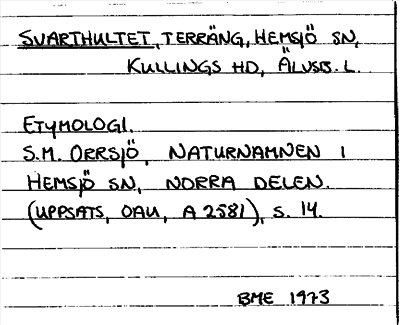 SVARTHULTET, TERRÄNG, HEMSJÖ SN,
KULLINGS HD, ÄLVSB. L.
ETYMOLOGI.
S.M. ORRSJÖ, NATURNAMNEN I
HEMSJÖ SN, NORRA DELEN.
(UPPSATS, OAU, A 2581), S. 14.
BME 1973